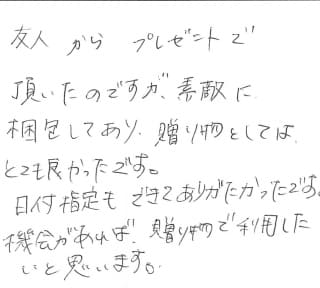 友人 から プレゼントで
頂いたのですが、素敵に
梱包してあり、贈り物としては、
とても良かったです。
日付指定も できてありがたかったです。
機会があれば、贈り物で利用した
いと思います。